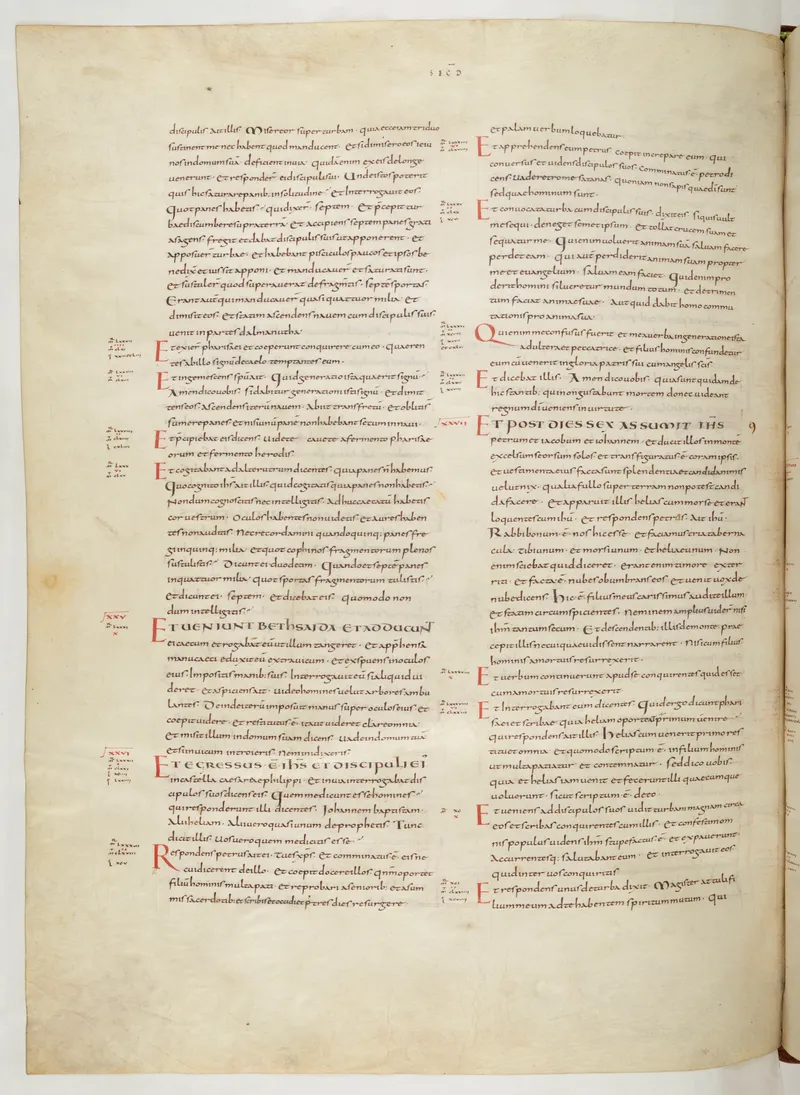 SECD
discipulis Ait illis Misereor super turbam · quia ecce iam triduo
sustinent me nec habent quod manducent · Et si dimisero eos ieiu
nos in domum suā deficient in uia · quidā enim ex eis de longe
uenerunt · Et responder ei discipuli sui · Unde istos poterit
quis hic saturare panib; in solitudine · Et Interrogauit eos
Quot panes habetis · qui dixer · septem · Et p̄cepit tur
bae discumbere supra terrā · Et accipiens septem panes grati
as agens fregit et dabat discipulis suis ut apponerent · et
apposuer turbae · Et habebant pisciculos paucos et ipsos be
nedixit et iussit apponi · Et manducauer et saturati sunt ·
et sustuler quod superauerat de fragm̄tis · septē sportas ·
Erant aut qui manducauer quasi quattuor milia · Et
dimisit eos · Et statim ascendens nauem cum discipulis suis
uenit in partes dalmanutha
Et exier pharisaei et coeperunt conquirere cum eo · quaeren
tes ab illo signū de caelo temptantes eum ·
Et ingemescens spū ait · Quid generatio ista quaerit signū
Amen dico uobis · si dabitur generationi isti signū · Et dimit
tens eos · Ascendens iterū nauem · Abiit trans fretū · Et obliti s̄
sumere panes et nisi unū panē non habebant secum in naui ·
Et p̄cipiebat eis dicens · Uidete cauete a fermento pharisae
orum et fermento herodis ·
Et cogitabant ad alterutrum dicentes · quia panes n̄ habemus ·
Quo cognito ihs̄ ait illis · quid cogitatis quia panes non habetis ·
Nondum cognoscitis nec intelligitis · Adhuc caecatū habetis
cor uestrum · Oculos habentes non uidetis et aures haben
tes non auditis · Nec recordamini quando quinq; panes fre
gi in quinq; milia · Et quot cophinos fragmentorum plenos
sustulistis · Dicunt ei duodecim · Quando et septē panes
in quattuor milia · quot sportas fragmentorum tulistis
Et dicunt ei · septem · Et dicebat eis · quomodo non
dum intelligitis
XXV
ET UENIUNT BETHSAIDA ET ADDUCUNT
ei caecum et rogabāt eū ut illum tangeret · Et app̄hensa
manu caeci eduxit eū extra uicum · et expuens in oculos
eius Impositis manib; suis · Interrogauit eū si aliquid ui
deret · Et aspiciens ait · Uideo homines uelut arbores ambu
lantes · Deinde iterū imposuit manus super oculos eius et
coepit uidere · et restitutus ē · ita ut uideret clare omnia ·
et misit illum in domum suam dicens · Uade in domum tuā
et si in uicum introieris · Nemini dixeris ·
XXVI
ET EGRESSUS Ē IH̄S ET DISCIPULI EI
in castella caesareae philippi · Et in uia interrogabat dis
cipulos suos dicens eis · Quem me dicunt esse homines
qui responderunt illi dicentes · Iohannem baptistam ·
Alii heliam · Alii uero quasi unum de prophetis · Tunc
dicit illis · Uos uero quem me dicitis esse
Respondens petrus ait ei · Tu es xp̄s · Et comminatus ē eis ne
cui dicerent de illo · Et coepit docere illos qn̄m oportet
filiū hominis multa pati · et reprobari a senioribus et a sum
mis sacerdotib; et scribis et occidi et p̄ tres dies resurgere
et palam uerbum loquebatur
Et apprehendens eum petrus coepit increpare eum · qui
conuersus et uidens discipulos suos comminatus ē petro di
cens Uade retro me satanas · quoniam non sapis quae dī sunt
sed quae hominum sunt ·
Et conuocata turba cum discipulis suis · dixit eis · Si quis uult
me sequi · deneget semet ipsum · et tollat crucem suam et
sequatur me · Qui enim uoluerit animam suā saluam facere
perdet eam · qui aut perdiderit animam suam propter
me et euangelium · saluam eam faciet · Quid enim pro
derit homini si lucretur mundum totum · et detrimen
tum faciat animae suae · Aut quid dabit homo commu
tationis pro anima sua
Qui enim me confusus fuerit et mea uerba in generatione ista
adultera et peccatrice · et filius hominis confundetur
eum cū uenerit in gloria patris sui cum angelis scis
Et dicebat illis · Amen dico uobis · quia sunt quidam de
hic stantib; qui non gustabunt mortem donec uideant
regnum dī ueniens in uirtute ·
XXVII
ET POST DIES SEX ASSUMIT IH̄S
petrum et iacobum et iohannem · et ducit illos in montē
excelsum seorsum solos et transfiguratus ē coram ipsis ·
et uestimenta eius facta sunt splendentia et candida nimis
uelut nix · qualia fullo super terram non potest candi
da facere · Et apparuit illis helias cum morse et erant
loquentes cum ihū · Et respondens petrus Ait ihū ·
Rabbi bonum ē nos hic esse · et faciamus tria taberna
cula · tibi unum · et morsi unum · et heliae unum · Non
enim sciebat quid diceret · Erant enim timore exter
riti · Et facta ē nubes obumbrans eos · et uenit uox de
nube dicens · Hic ē filius meus carissimus audite illum
et statim circumspicientes · Neminem amplius uider nisi
ihm̄ tantum secum · Et descendentib; illis de monte prae
cepit illis ne cui quae uidissent narrarent · Nisi cum filius
hominis a mortuis resurrexerit ·
Et uerbum continuerunt apud se conquirentes quid esset
cum a mortuis resurrexerit
Et Interrogabant eum dicentes · Quid ergo dicunt phari
saei et scribae · quia heliam oportet primum uenire
qui respondens ait illis · Helias cum uenerit primo res
tituet omnia · et quomodo scriptum ē in filium hominis
ut multa patiatur et contemnatur · Sed dico uobis
quia et helias iam uenit et fecerunt illi quaecumque
uoluerunt · sicut scriptum ē de eo
Et ueniens ad discipulos suos uidit turbam magnam circa
eos et scribas conquirentes cum illis · et confestim om
nis populus uidens ihm̄ stupefactus ē · et expauerunt
Accurrentesq; salutabant eum · et interrogauit eos
quid inter uos conquiritis
Et respondens unus de turba dixit · Magister attuli fi
lium meum ad te habentem spiritum mutum · Qui